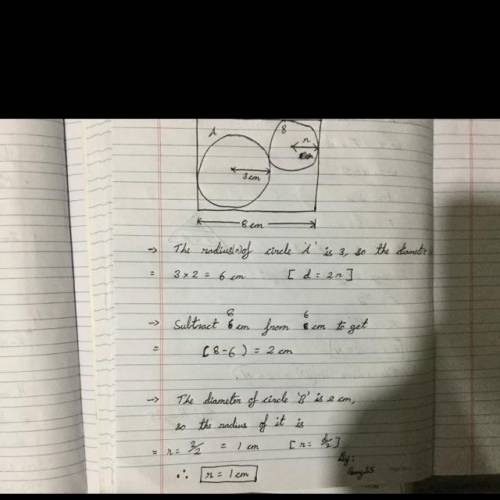 A
B
r
3 cm
8 cm
→ The radius(r) of circle 'A' is 3, so the diameter
= 3 × 2 = 6 cm [ d = 2r ]
8 6
→ Subtract cm from cm to get
= (8-6) = 2 cm
→ The diameter of circle 'B' is 2 cm,
so the radius of it is
= r = 2/2 = 1 cm [ r = d/2 ]
By:
∴ r = 1 cm